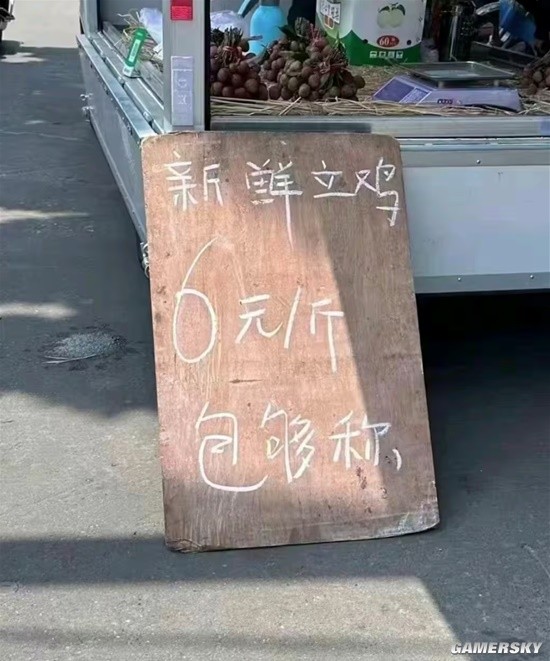 新鲜立鸡
6元/斤
包够称,
GAMERSKY